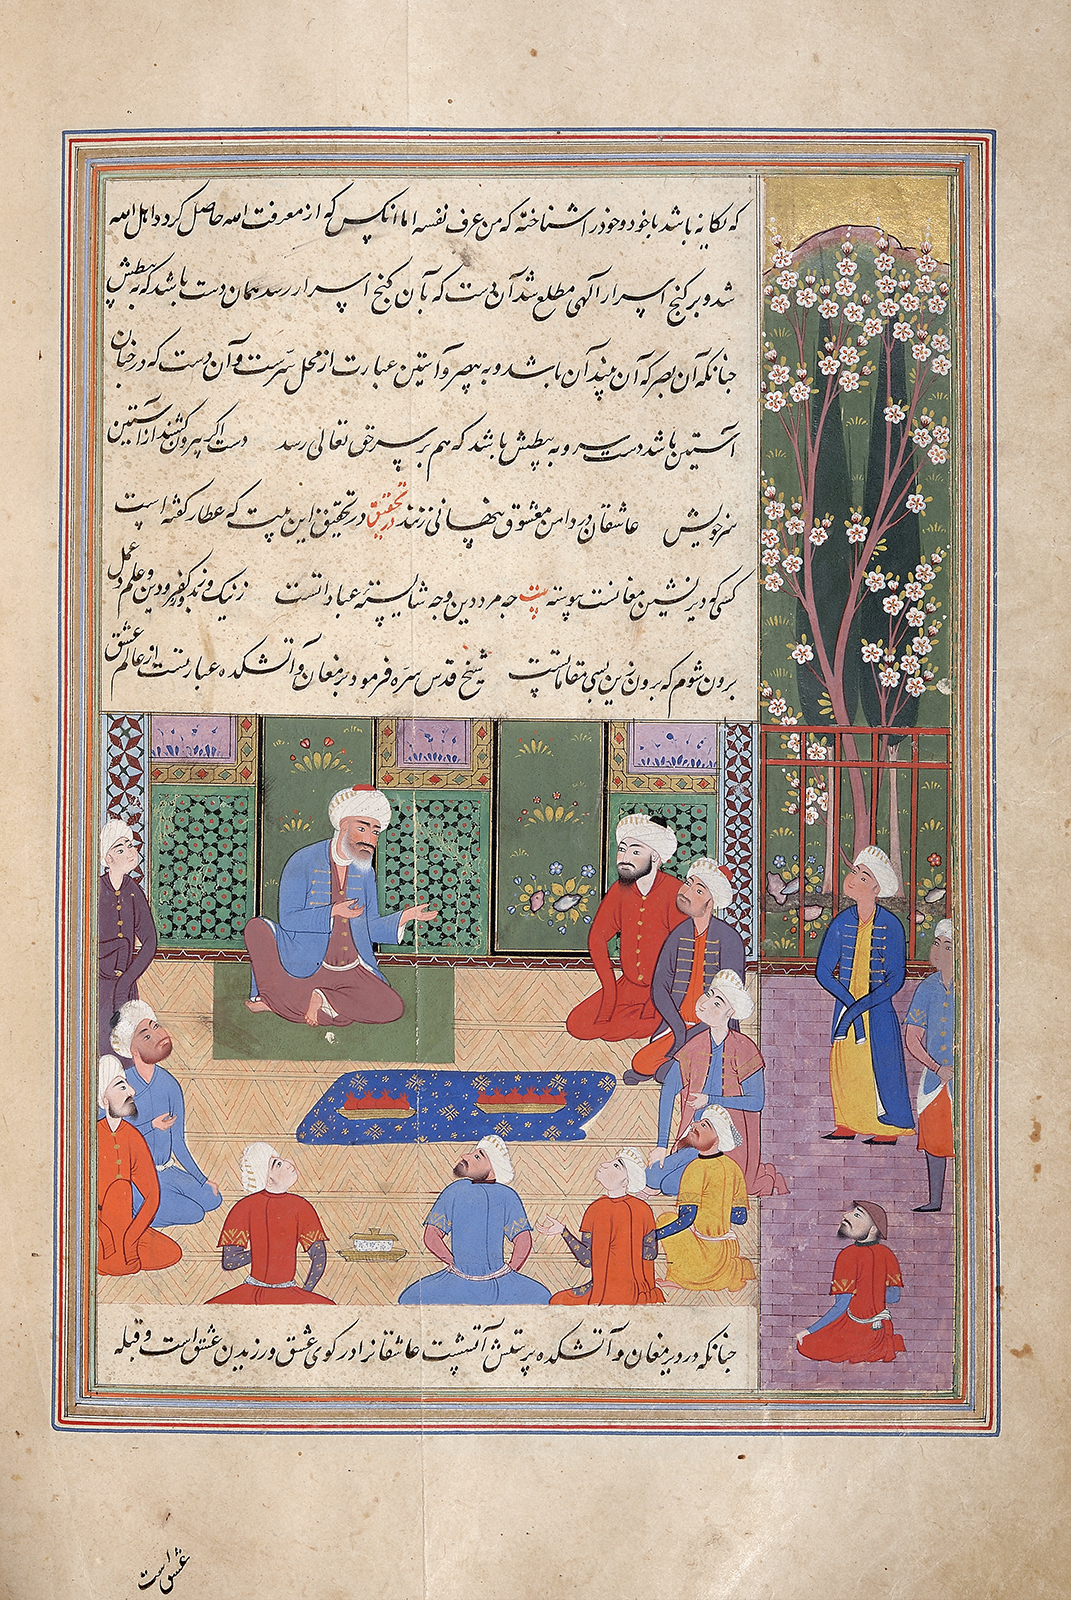 که یکانه باشد باخود و خود را شناخته که من عرف نفسه اما انکس که از معرفت الله حاصل کرد و اهل الله
شد و بر کنج اسرار الهی مطلع شد آن دست که بآن کنج اسرار رسد همان دست باشد که به یبطش
جنانکه آن بصر که آن بیند آن باشد و به یبصر و آستین عبارت از محل سرست و آن دست که در جنان
آستین باشد دست سر و به یبطش باشد که هم بر سر حق تعالی رسد دست اکر بیرون کشند از آستین
سر خویش عاشقان در دامن معشوق پنهانی زنند در تحقیق در تحقیق این بیت که عطار کفته است
کسی که دیر نشین مغانست پیوسته بیت جه مرد دین وجه شایستۀ عباداتست ز نیک و بد و کفر و دین و علم و عمل
برون شوم که برون زین بسی مقاماتست شیخ قدس سره فرمود دیر مغان و آتشکده عبارتست از عالم عشق
جنانکه در دیر مغان و آتشکده پرستش آتشست عاشقانرا در کوی عشق ورزیدن عشق است و قبله
عشق است